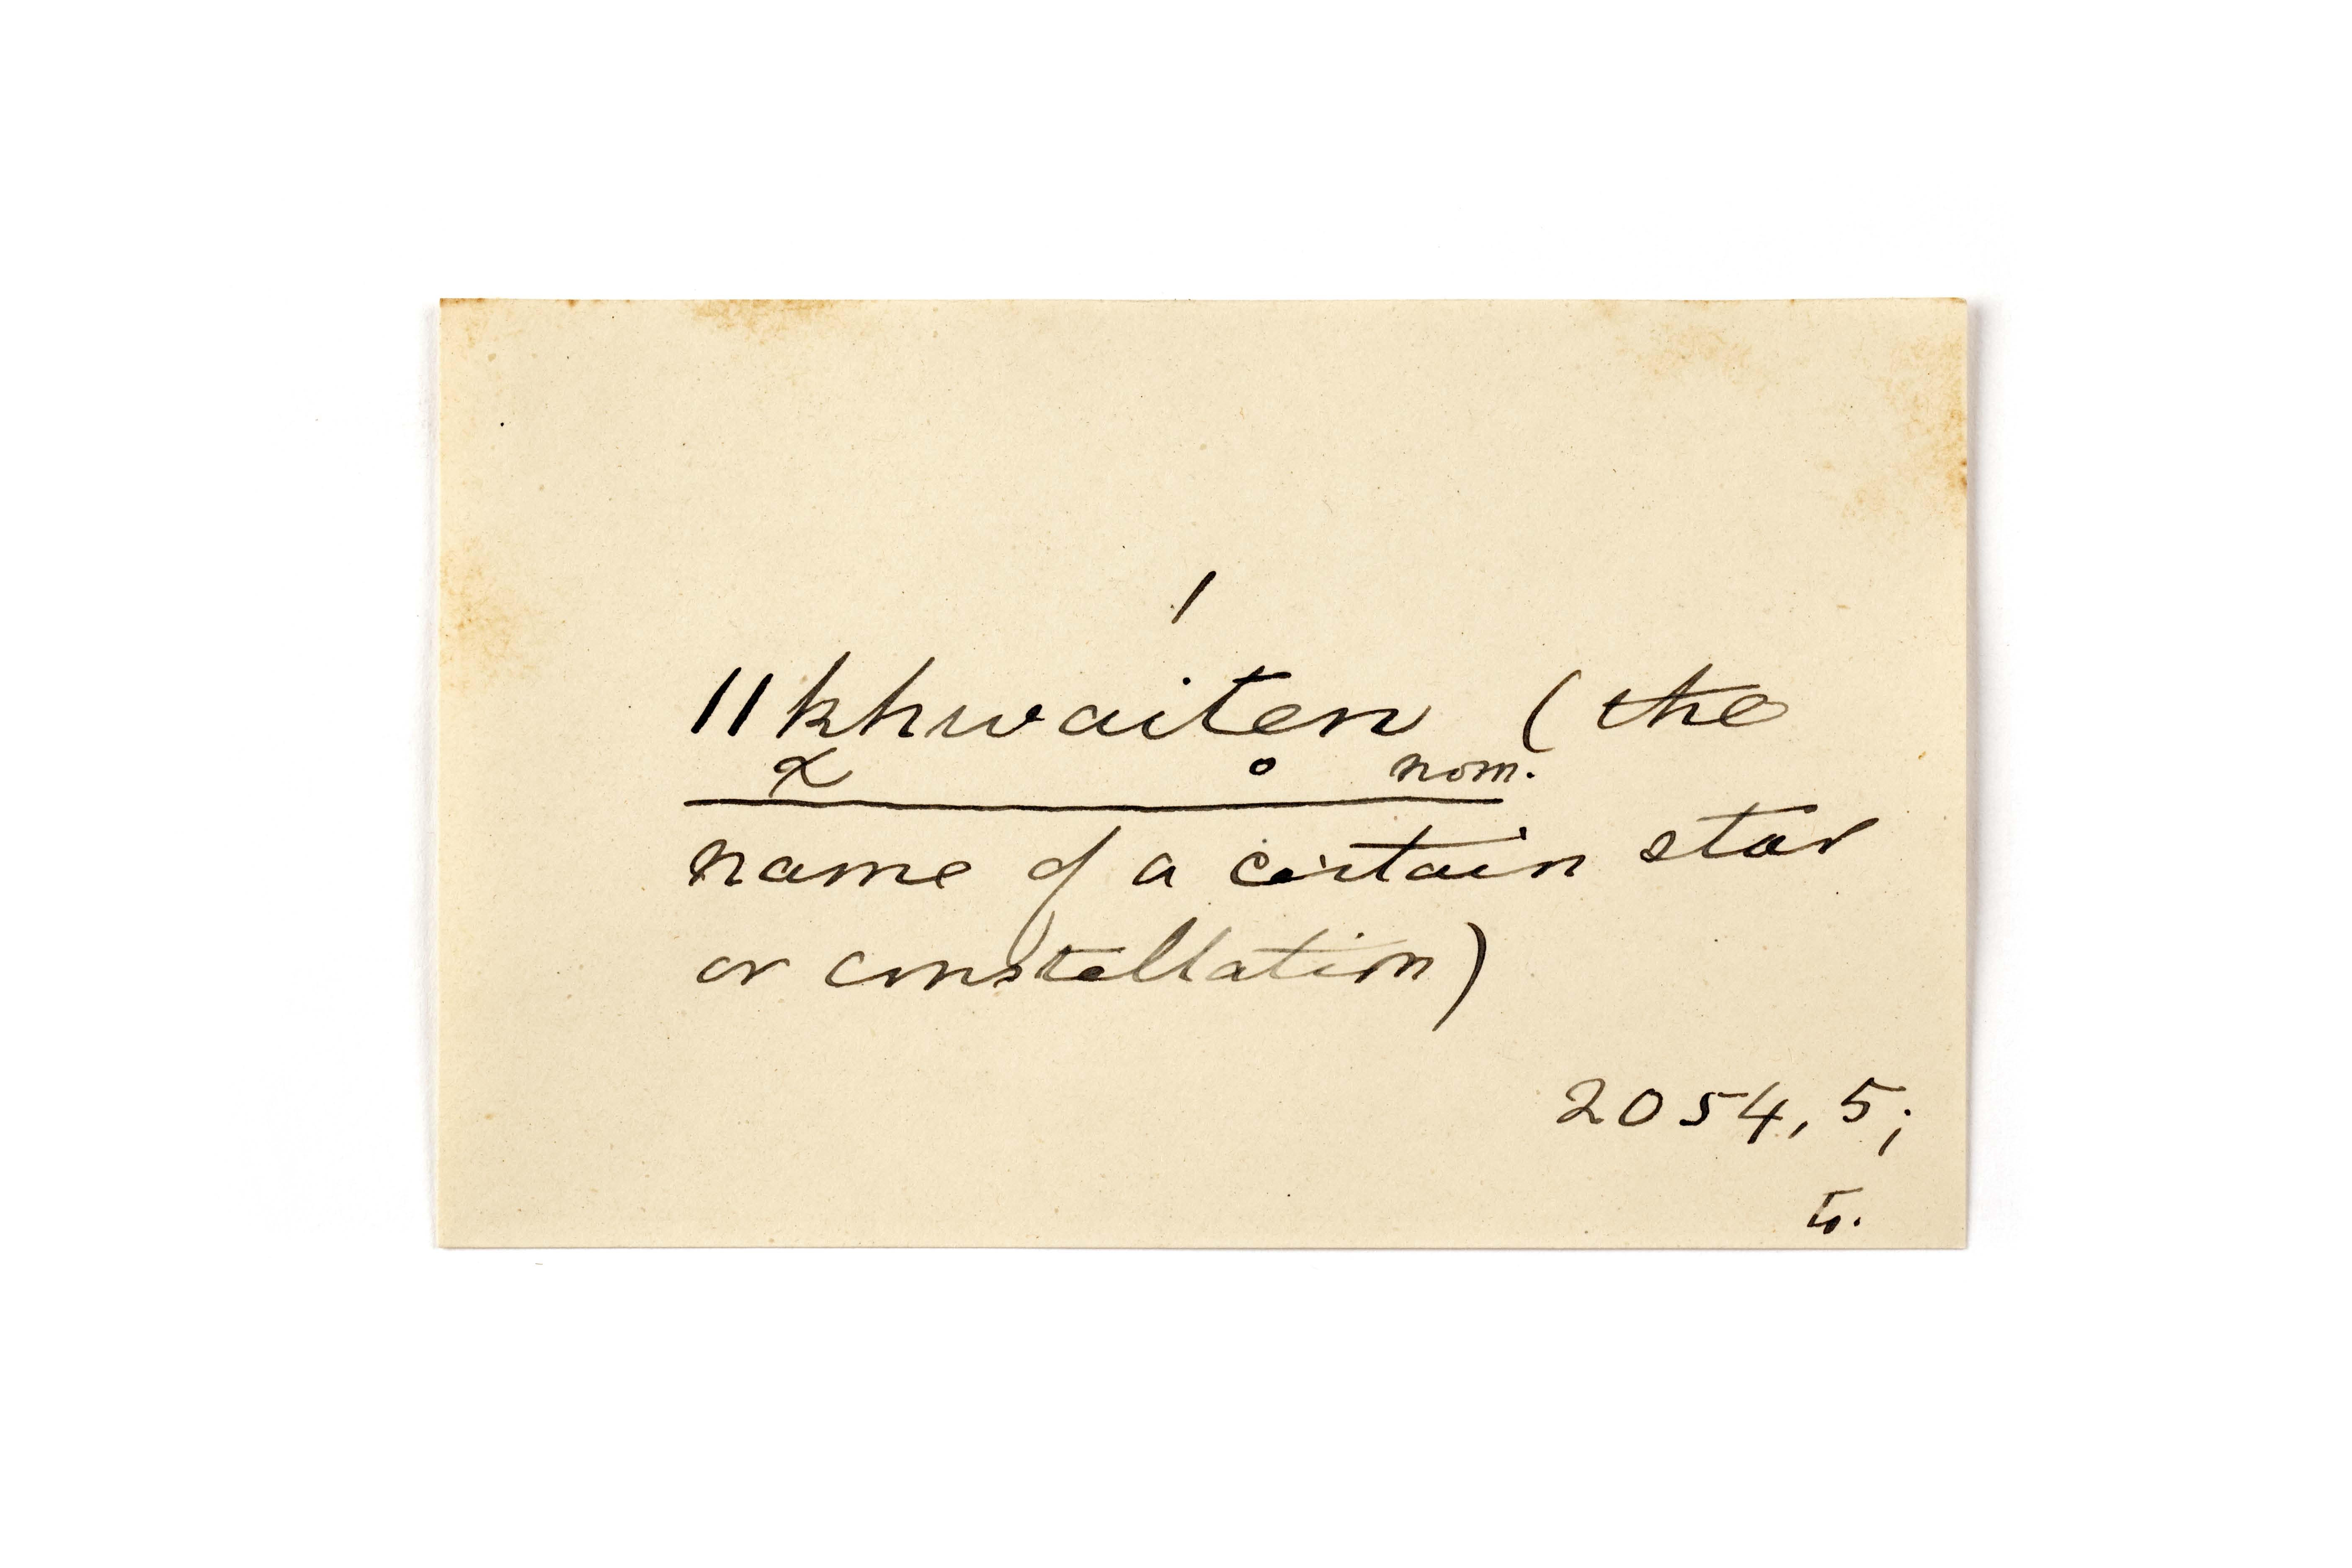 /
ǁkhwaiten (the
x o nom.
name of a certain star
or constellation)
2054, 5;